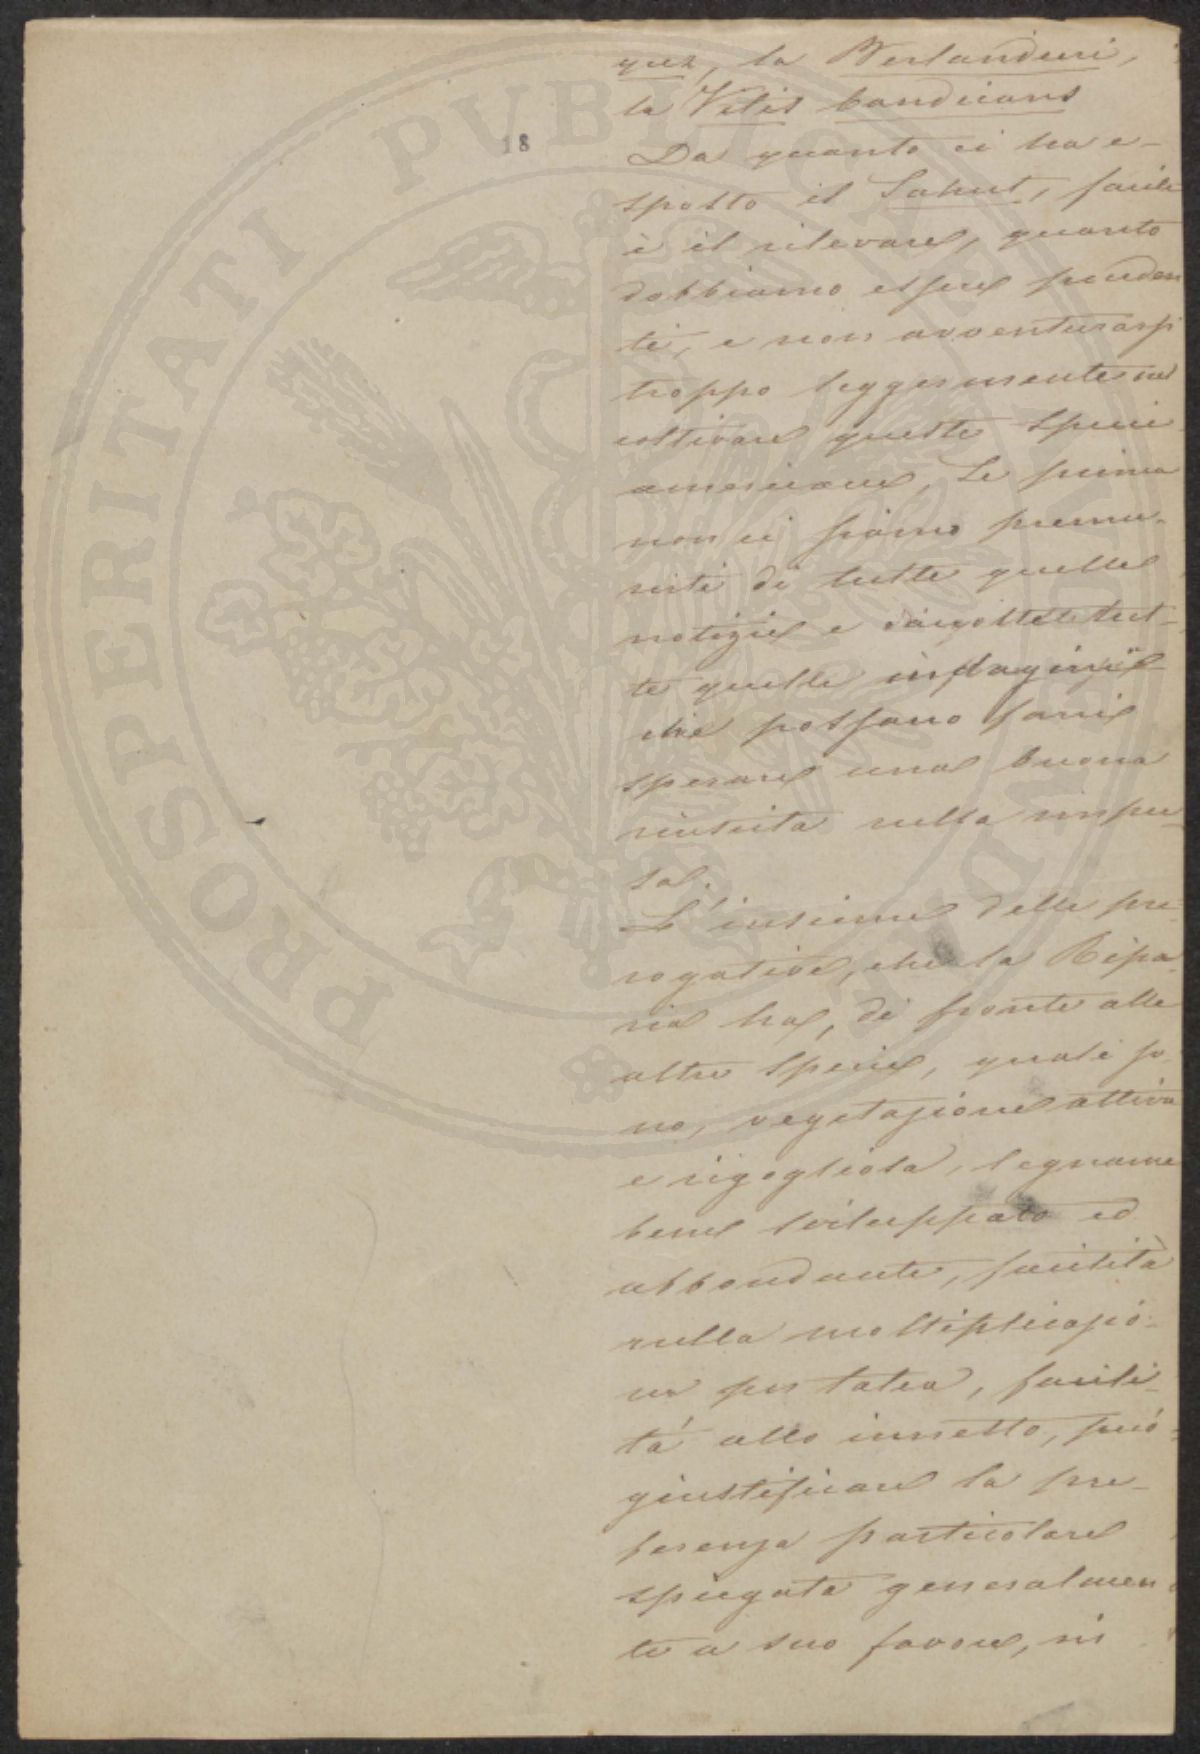 18
quez, la Berlandieri,
la Vitis Candicans
Da quanto ci ha e-
sposto il Sahut, facile
è il rilevare, quanto
dobbiamo essere pruden
ti, e non avventurarsi
troppo leggermente nel
coltivare queste specie
americane, se prima
non ci siamo premu-
niti di tutte quelle
notizie e raccolte tut-
te quelle indagini
che possano farci
sperare una buona
riuscita nella impre-
sa.
L'insieme delle pre-
rogative, che la Ripa-
ria ha, di fronte alle
altre specie, quali so-
no, vegetazione attiva
e rigogliosa, legname
bene sviluppato ed
abbondante, facilità
nella moltiplicazio-
ne per talea, facili-
tà allo innesto, può
giustificare la pre-
ferenza particolare
spiegata generalmen
te a suo favore, in
PROSPERITATI PVBLICAE AVGENDAE